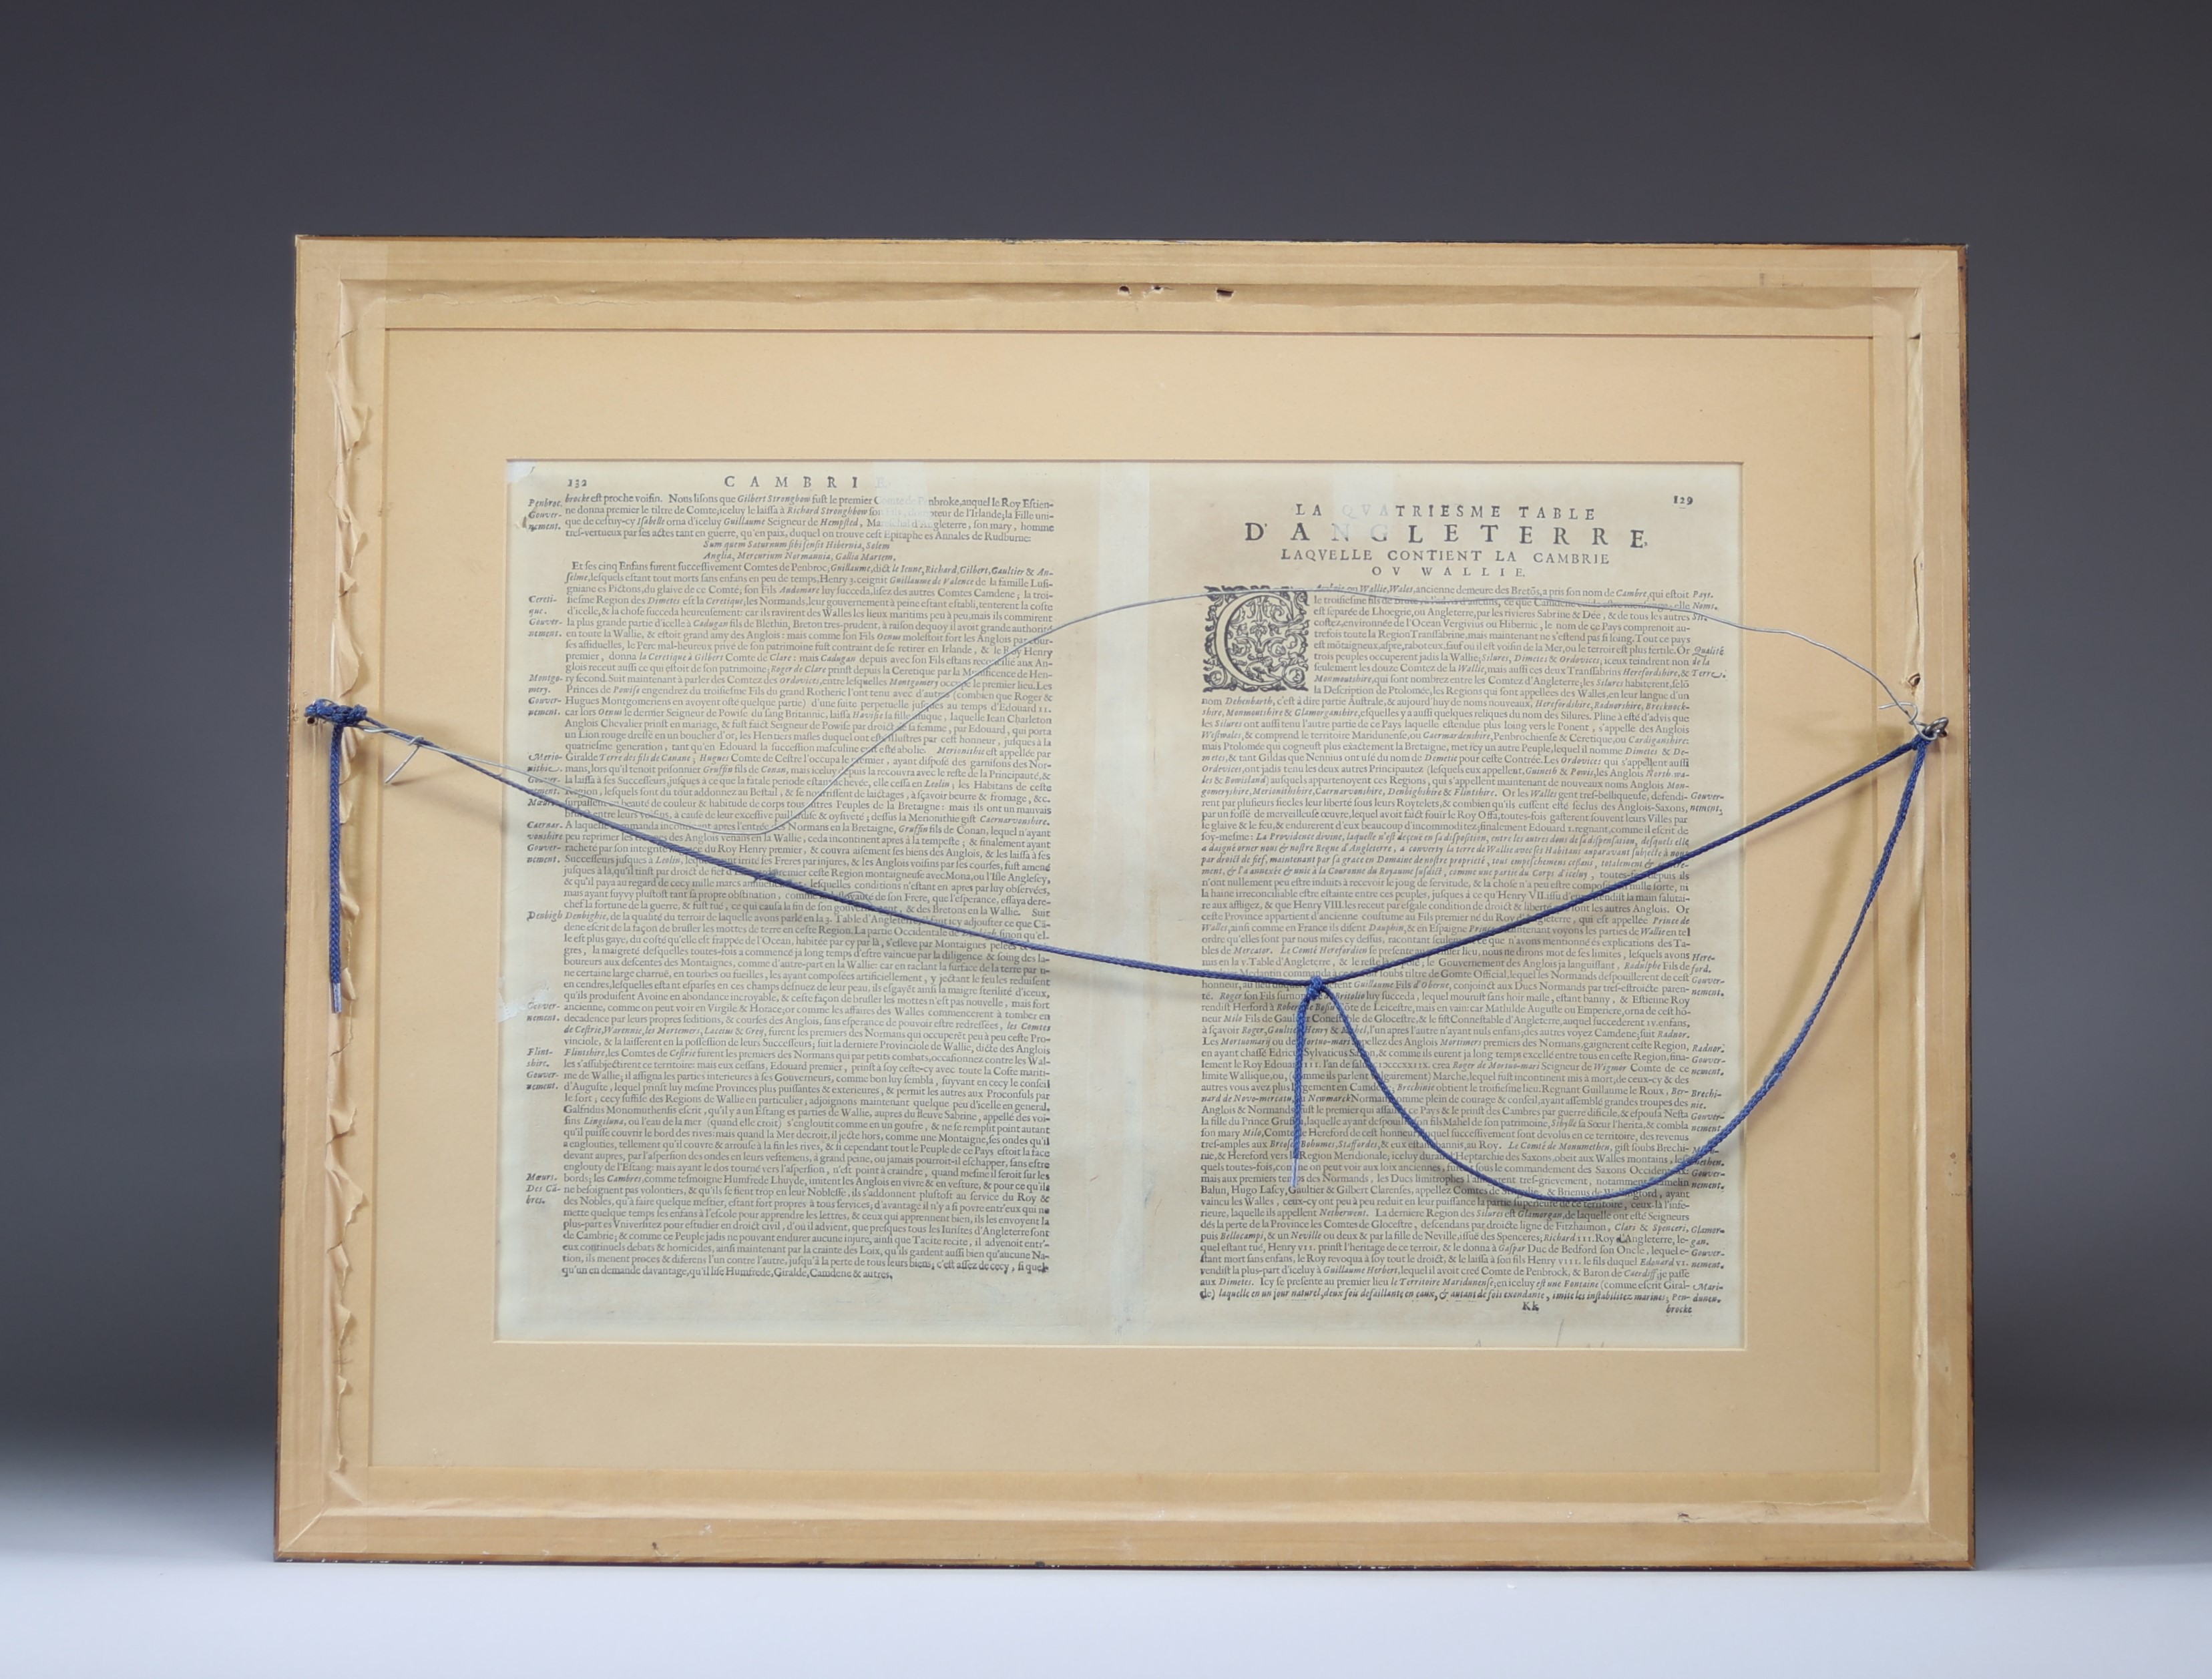 132
CAMBRI
Penbroc. brocke eſt proche voiſin. Nous liſons que Gilbert Strongbow fuſt le premier Penbroke, auquel le Roy Eſtien-
Gouver- ne donna premier le tiltre de Comte; iceluy le laiſſa à Richard Stronghbow ſon de l'Irlande; la Fille uni-
nement. que de ceſtuy-cy Iſabelle orna d'iceluy Guillaume Seigneur de Hempſted, d'Angleterre, ſon mary, homme
tres-vertueux par ſes actes tant en guerre, qu'en paix, duquel on trouve ceſt Epitaphe es Annales de Rudburne:
Sum quem Saturnum ſibi ſenſit Hibernia, Solem
Anglia, Mercurium Normannia, Gallia Martem.
Et ſes cinq Enfans furent ſucceſſivement Comtes de Penbroc, Guillaume, dict le Ieune, Richard, Gilbert, Gaultier & An-
ſelme, leſquels eſtant tout morts ſans enfans en peu de temps, Henry 3. ceignit Guillaume de Valence de la famille Luſi-
gniane es Pictons, du glaive de ce Comté; ſon Fils Audomare luy ſucceda, liſez des autres Comtes Camdene; la troi-
Cereti- ſieſme Region des Dimetes eſt la Ceretique, les Normands, leur gouvernement à peine eſtant eſtabli, tenterent la coſte
que. d'icelle, & la choſe ſucceda heureuſement: car ils ravirent des Walles les lieux maritims peu à peu, mais ils commirent
Gouver- la plus grande partie d'icelle à Cadugan fils de Blethin, Breton tres-prudent, à raiſon dequoy il avoit grande authorité
nement. en toute la Wallie, & eſtoit grand amy des Anglois: mais comme ſon Fils Oenus moleſtoit fort les Anglois par cour-
ſes aſſiduelles, le Pere mal-heureux privé de ſon patrimoine fuſt contraint de ſe retirer en Irlande, & le Roy Henry
premier, donna la Ceretique à Gilbert Comte de Clare: mais Cadugan depuis avec ſon Fils eſtans reconcilié aux An-
glois receut auſſi ce qui eſtoit de ſon patrimoine; Roger de Clare prinſt depuis la Ceretique par la Munificence de Hen-
Montgo- ry ſecond. Suit maintenant à parler des Comtez des Ordovices, entre leſquelles Montgomery occupe le premier lieu. Les
mery. Princes de Powiſe engendrez du troiſieſme Fils du grand Rotheric l'ont tenu avec d'autres (combien que Roger &
Gouver- Hugues Montgomeriens en avoyent oſté quelque partie) d'une ſuite perpetuelle juſques au temps d'Edouard II.
nement. car lors Oenus le dernier Seigneur de Powiſe du ſang Britannic, laiſſa Haviſe ſa fille unique, laquelle Iean Charleton
Anglois Chevalier prinſt en mariage, & fuſt faict Seigneur de Powiſe par droict de ſa femme, par Edouard, qui porta
un Lion rouge dreſſé en un bouclier d'or, les Hentiers maſles duquel ont eſté illuſtres par ceſt honneur, juſques à la
quatrieſme generation, tant qu'en Edouard la ſucceſſion maſculine euſt eſté abolie. Merionithie eſt appellée par
Merio- Giralde Terre des fils de Canane; Hugues Comte de Ceſtre l'occupa le premier, ayant diſpoſé des garniſons des Nor-
nithie. mans, lors qu'il tenoit priſonnier Gruffin fils de Conan, mais iceluy depuis la recouvra avec le reſte de la Principauté, &
Gouver- la laiſſa à ſes Succeſſeurs, juſques à ce que la fatale periode eſtant achevée, elle ceſſa en Leolin; les Habitans de ceſte
nement. Region, leſquels ſont du tout addonnez au Beſtail, & ſe nourriſſent de laictages, à ſçavoir beurre & fromage, &c.
Mœurs. ſurpaſſent en beauté de couleur & habitude de corps tous autres Peuples de la Bretaigne: mais ils ont un mauvais
bruit entre leurs voiſins, à cauſe de leur exceſſive paillardiſe & oyſiveté; deſſus la Merionithie giſt Caernarvonſhire.
Caernar- A laquelle commanda incontinent apres l'entrée des Normans en la Bretaigne, Gruffin fils de Conan, lequel n'ayant
vonſhire peu reprimer les des Anglois venans en la Wallie, ceda incontinent apres à la tempeſte; & finalement ayant
Gouver- racheté par ſon integrité du Roy Henry premier, & couvra aiſement ſes biens des Anglois, & les laiſſa à ſes
nement. Succeſſeurs juſques à Leolin, lequel ayant irrité ſes Freres par injures, & les Anglois voiſins par ſes courſes, fuſt amené
juſques à là, qu'il tinſt par droict de fief d'Edouard premier ceſte Region montaigneuſe avec Mona, ou l'Iſle Angleſey,
& qu'il paya au regard de cecy mille marcs annuellement, leſquelles conditions n'eſtant en apres par luy obſervées,
mais ayant ſuyvy pluſtoſt tant ſa propre obſtination, comme la deſloyauté de ſon Frere, que l'eſperance, eſſaya dere-
chef la fortune de la guerre, & fuſt tué, ce qui cauſa la fin de ſon gouvernement, & des Bretons en la Wallie. Suit
Denbigh Denbighie, de la qualité du terroir de laquelle avons parlé en la 3. Table d'Angleterre, faut icy adjouſter ce que Cã-
dene eſcrit de la façon de bruſler les mottes de terre en ceſte Region. La partie Occidentale de ſinon qu'el-
le eſt plus gaye, du coſté qu'elle eſt frappée de l'Ocean, habitée par cy par là, s'eſleve par Montaignes pelées
gres, la maigreté deſquelles toutes-fois a commencé ja long temps d'eſtre vaincue par la diligence & ſoing des la-
boureurs aux deſcentes des Montaignes, comme d'autre-part en la Wallie: car en raclant la ſurface de la terre par u-
ne certaine large charrue, en tourbes ou fueilles, les ayant compoſées artificiellement, y jectant le feu les reduiſent
en cendres, leſquelles eſtant eſparſes en ces champs deſnuez de leur peau, ils eſgayét ainſi la maigre ſterilité d'iceux,
qu'ils produiſent Avoine en abondance incroyable, & ceſte façon de bruſler les mottes n'eſt pas nouvelle, mais fort
Gouver- ancienne, comme on peut voir en Virgile & Horace; or comme les affaires des Walles commencerent à tomber en
nement. decadence par leurs propres ſeditions, & courſes des Anglois, ſans eſperance de pouvoir eſtre redreſſées, les Comtes
de Ceſtrie, Warennie, les Mortemers, Laceins & Grey, furent les premiers des Normans qui occuperēt peu à peu ceſte Pro-
vinciole, & la laiſſerent en la poſſeſſion de leurs Succeſſeurs; ſuit la derniere Provinciole de Wallie, dicte des Anglois
Flint- Flintſhire, les Comtes de Ceſtrie furent les premiers des Normans qui par petits combats, occaſionnez contre les Wal-
ſhire. les s'aſſubjectirent ce territoire: mais eux ceſſans, Edouard premier, prinſt à ſoy ceſte-cy avec toute la Coſte mariti-
Gouver- me de Wallie; il aſſigna les parties interieures à ſes Gouverneurs, comme bon luy ſembla, ſuyvant en cecy le conſeil
nement. d'Auguſte, lequel prinſt luy meſme Provinces plus puiſſantes & exterieures, & permit les autres aux Proconſuls par
le ſort; cecy ſuffiſe des Regions de Wallie en particulier, adjoignons maintenant quelque peu d'icelle en general.
Galfridus Monomuthenſis eſcrit, qu'il y a un Eſtang es parties de Wallie, aupres du fleuve Sabrine, appellé des voi-
ſins Lingſluna, où l'eau de la mer (quand elle croit) s'engloutit comme en un goufre, & ne ſe remplit point autant
qu'il puiſſe couvrir le bord des rives: mais quand la Mer decroit, il jecte hors, comme une Montaigne, ſes ondes qu'il
a englouties, tellement qu'il couvre & arrouſe à la fin les rives, & ſi cependant tout le Peuple de ce Pays eſtoit la face
devant aupres, par l'aſperſion des ondes en leurs veſtemens, à grand peine, ou jamais pourroit-il eſchapper, ſans eſtre
englouty de l'Eſtang: mais ayant le dos tourné vers l'aſperſion, n'eſt point à craindre, quand meſme il ſeroit ſur les
Mœurs. bords; les Cambres, comme teſmoigne Humfrede Lhuyde, imitent les Anglois en vivre & en veſture, & pource qu'ils
Des Cã- ne beſoignent pas volontiers, & qu'ils ſe fient trop en leur Nobleſſe, ils s'addonnent pluſtoſt au ſervice du Roy &
bres. des Nobles, qu'à faire quelque meſtier, eſtant fort propres à tous ſervices; d'avantage il n'y a ſi povre entr'eux qui ne
mette quelque temps ſes enfans à l'eſcole pour apprendre les lettres, & ceux qui apprennent bien, ils les envoyent la
plus-part es Vniverſitez pour eſtudier en droict civil, d'où il advient, que preſques tous les Iuriſtes d'Angleterre ſont
de Cambrie; & comme ce Peuple jadis ne pouvant endurer aucune injure, ainſi que Tacite recite, il advenoit entr'-
eux continuels debats & homicides, ainſi maintenant par la crainte des Loix, qu'ils gardent auſſi bien qu'aucune Na-
tion, ils menent proces & diferens l'un contre l'autre, juſqu'à la perte de tous leurs biens; c'eſt aſſez de cecy, ſi quel-
qu'un en demande davantage, qu'il liſe Humfrede, Giralde, Camdene & autres.
129
LA QVATRIESME TABLE
D'ANGLETERRE,
LAQVELLE CONTIENT LA CAMBRIE
OV WALLIE.
C ou Wallie, Wales, ancienne demeure des Bretõs, a pris ſon nom de Cambre, qui eſtoit Pays.
le troiſieſme fils de Brute elle Noms.
eſt ſeparée de Lhoegrie, ou Angleterre, par les rivieres Sabrine & Dée, & de tous les autres
coſtez, environnée de l'Ocean Vergivius ou Hibernic, le nom de ce Pays comprenoit au-
trefois toute la Region Tranſſabrine, mais maintenant ne s'eſtend pas ſi loing. Tout ce pays
eſt mõtaigneux, aſpre, raboteux, ſauf ou il eſt voiſin de la Mer, ou le terroir eſt plus fertile. Or Qualité
trois peuples occuperent jadis la Wallie; Silures, Dimetes & Ordovices; iceux teindrent non de la
ſeulement les douze Comtez de la Wallie, mais auſſi ces deux Tranſſabrins Herefordſhire, & Terre.
Monmoutſhire, qui ſont nombrez entre les Comtez d'Angleterre; les Silures habiterent, ſelõ
la Deſcription de Ptolomée, les Regions qui ſont appellees des Walles, en leur langue d'un
nom Dehenbarth, c'eſt à dire partie Auſtrale, & aujourd'huy de noms nouveaux, Herefordſhire, Radnorſhire, Brecknock-
ſhire, Monmoutſhire & Glamorganſhire, eſquelles y a auſſi quelques reliques du nom des Silures. Pline à eſté d'advis que
les Silures ont auſſi tenu l'autre partie de ce Pays laquelle eſtendue plus loing vers le Ponent, s'appelle des Anglois
Weſtwales, & comprend le territoire Maridunenſe, ou Caermardenſhire, Penbrochienſe & Ceretique, ou Cardiganſhire:
mais Ptolomée qui cogneuſt plus exactement la Bretaigne, met icy un autre Peuple, lequel il nomme Dimetes & De-
metes, & tant Gildas que Nennius ont uſé du nom de Demetie pour ceſte Contrée. Les Ordovices qui s'appellent auſſi
Ordevices, ont jadis tenu les deux autres Principautez (leſquels eux appellent, Guineth & Powis, les Anglois North-wa-
les & Powiſland) auſquels appartenoyent ces Regions, qui s'appellent maintenant de nouveaux noms Anglois Mon-
gomeryſhire, Merionithſhire, Caernarvonſhire, Denbighſhire & Flintſhire. Or les Walles gent tres-belliqueuſe, defendi- Gouver-
rent par pluſieurs ſiecles leur liberté ſous leurs Roytelets, & combien qu'ils euſſent eſté ſeclus des Anglois-Saxons, nement.
par un foſſé de merveilleuſe œuvre, lequel avoit faict fouir le Roy Offa, toutes-fois gaſterent ſouvent leurs Villes par
le glaive & le feu, & endurerent d'eux beaucoup d'incommoditez; finalement Edouard I. regnant, comme il eſcrit de
ſoy-meſme: La Providence divine, laquelle n'eſt deceue en ſa diſpoſition, entre les autres dons de ſa diſpenſation, deſquels elle
a daigné orner nous & noſtre Regne d'Angleterre, a converty la terre de Wallie avec ſes Habitans auparavant ſubjecte à nous
par droict de fief, maintenant par ſa grace en Domaine de noſtre proprieté, tous empeſchemens ceſſans, totalement &
ment, & l'a annexée & unie à la Couronne du Royaume ſuſdict, comme une partie du Corps d'iceluy, toutes-fois depuis ils
n'ont nullement peu eſtre induits à recevoir le joug de ſervitude, & la choſe n'a peu eſtre compoſée en mille ſorte, ni
la haine irreconciliable eſtre eſtainte entre ces peuples, juſques à ce qu'Henry VII. iſſu d'eux eſtendiſt la main ſalutai-
re aux affligez, & que Henry VIII. les receut par eſgale condition de droict & liberté les autres Anglois. Or
ceſte Province appartient d'ancienne couſtume au Fils premier né du Roy d'Angleterre, qui eſt appellée Prince de
Walles, ainſi comme en France ils diſent Dauphin, & en Eſpaigne Prince voyons les parties de Wallie en tel
ordre qu'elles ſont par nous miſes cy deſſus, racontant ſeulement ce que n'avons mentionné és explications des Ta-
bles de Mercator. Le Comté Herefordien ſe preſente au premier lieu, nous ne dirons mot de ſes limites, leſquels avons Here-
mis en la V. Table d'Angleterre, & le reſte le Gouvernement des Anglois ja languiſſant, Radulphe Fils de ford.
Medantin commanda à ſoubs tiltre de Comte Official, lequel les Normands deſpouillerent de ceſt Gouver-
honneur, au lieu duquel Guillaume Fils d'Oberne, conjoinct aux Ducs Normands par tres-eſtroicte paren- nement.
té. Roger ſon Fils ſurnommé de Britolio luy ſucceda, lequel mouruſt ſans hoir maſle, eſtant banny, & Eſtienne Roy
rendiſt Herford à Robert Boſſu Cõte de Leiceſtre, mais en vain: car Mathilde Auguſte ou Empericre, orna de ceſt hõ-
neur Milo Fils de Gaultier Coneſtable de Gloceſtre, & le fiſt Conneſtable d'Angleterre, auquel ſuccederent IV. enfans,
à ſçavoir Roger, Gaultier, Henry & Mahel, l'un apres l'autre n'ayant nuls enfans; des autres voyez Camdene; ſuit Radnor.
Les Mortuomarij ou de Mortuo-mari appellez des Anglois Mortimers premiers des Normans, gaignerent ceſte Region, Radnor.
en ayant chaſſé Edrich Sylvaticus Saxon, & comme ils eurent ja long temps excellé entre tous en ceſte Region, fina- Gouver-
lement le Roy Edouard III. l'an de ſalut crea Roger de Mortuo-mari Seigneur de Wigmor Comte de ce nement.
limite Wallique, ou, (comme ils parlent vulgairement) Marche, lequel fuſt incontinent mis à mort, de ceux-cy & des
autres vous avez plus largement en Camdene. Brechinie obtient le troiſieſme lieu. Regnant Guillaume le Roux, Ber- Brechi-
nard de Novo-mercatu, ou Newmarck Normand, homme plein de courage & conſeil, ayant aſſemblé grandes troupes des nie.
Anglois & Normands, fuſt le premier qui aſſaillit ce Pays & le prinſt des Cambres par guerre difficile, & eſpouſa Neſta Gouver-
la fille du Prince Gruffin, laquelle ayant deſpouillé ſon fils Mahel de ſon patrimoine, Sibylle ſa Sœur l'herita, & combla nement.
ſon mary Milo, Comte de Hereford de ceſt honneur, auquel ſucceſſivement ſont devolus en ce territoire, des revenus
tres-amples aux Breoſes, Bohumes, Staffordes, & eux eſtans bannis, au Roy. Le Comté de Monumethen, giſt ſoubs Brechi-
nie, & Hereford vers la Region Meridionale, iceluy durant l'Heptarchie des Saxons, obeit aux Walles montains, leſ-
quels toutes-fois, comme on peut voir aux loix anciennes, furent ſous le commandement des Saxons Occidentaux, Gouver-
mais aux premiers temps des Normands, les Ducs limitrophes l'affligerent tres-grievement, notamment Hamelin nement.
Balun, Hugo Laſcy, Gaultier & Gilbert Clarenſes, appellez Comtes de & Brienus de Walingford, ayant
ceux-cy ont peu à peu reduit en leur puiſſance la partie ſuperieure de ce territoire, ceux-là l'infe-
rieure, laquelle ils appellent Netherwent. La derniere Region des Silures eſt Glamorgan, de laquelle ont eſté Seigneurs
dés la perte de la Province les Comtes de Gloceſtre, deſcendans par droicte ligne de Fitzhaimon, Clari & Spencers, Glamor-
puis Bellocampi, & un Neville ou deux & par la fille de Neville, iſſue des Spenceres, Richard III. Roy d'Angleterre, le- gan.
quel eſtant tué, Henry VII. prinſt l'heritage de ce terroir, & le donna à Gaſpar Duc de Bedford ſon Oncle, lequel e- Gouver-
ſtant mort ſans enfans, le Roy revoqua à ſoy tout le droict, & le laiſſa à ſon fils Henry VIII. le fils duquel Edouard VI. nement.
vendiſt la plus-part d'iceluy à Guillaume Herbert, lequel il avoit creé Comte de Penbrock, & Baron de Caerdiff; je paſſe
aux Dimetes. Icy ſe preſente au premier lieu le Territoire Maridunenſe; en iceluy eſt une Fontaine (comme eſcrit Giral- Mari-
de) laquelle en un jour naturel, deux fou defaillante en eaux, & autant de fois exondante, imite les inſtabilitez marines; Pen- dunen.
Kk
brocke